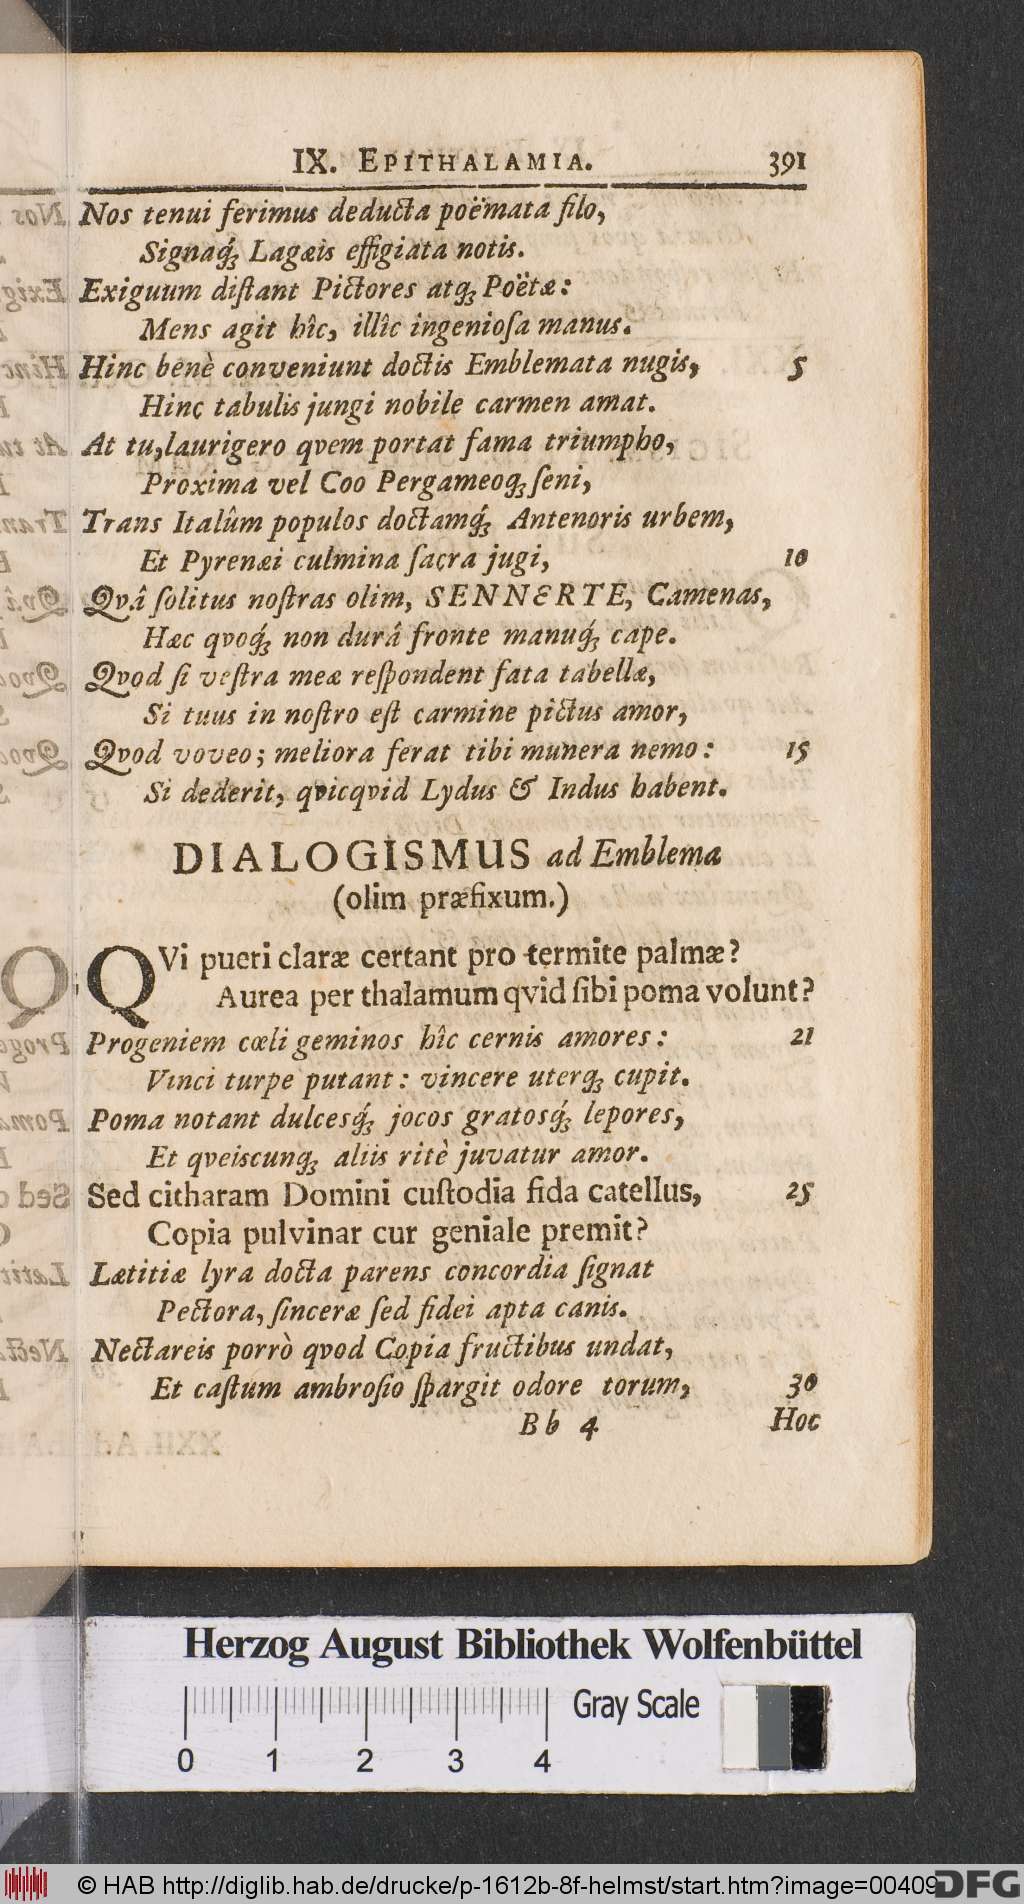 IX. EPITHALAMIA. 391
Nos tenui ferimus deducta poëmata filo,
Signaq́ꝫ Lagæis effigiata notis.
Exiguum diſtant Pictores atqꝫ Poëtæ:
Mens agit hîc, illîc ingenioſa manus.
Hinc benè conveniunt doctis Emblemata nugis, 5
Hinc tabulis jungi nobile carmen amat.
At tu, laurigero qvem portat fama triumpho,
Proxima vel Coo Pergameoqꝫ ſeni,
Trans Italûm populos doctamq́ꝫ Antenoris urbem,
Et Pyrenæi culmina ſacra jugi, 10
Qvâ ſolitus noſtras olim, SENNERTE, Camenas,
Hæc qvoq́ꝫ non durâ fronte manuq́ꝫ cape.
Qvod ſi veſtra meæ reſpondent fata tabellæ,
Si tuus in noſtro eſt carmine pictus amor,
Qvod voveo; meliora ferat tibi munera nemo: 15
Si dederit, qvicqvid Lydus & Indus habent.
DIALOGISMUS ad Emblema
(olim præfixum.)
QVi pueri claræ certant pro termite palmæ?
Aurea per thalamum qvid ſibi poma volunt?
Progeniem cœli geminos hîc cernis amores: 21
Vinci turpe putant: vincere uterqꝫ cupit.
Poma notant dulcesq́ꝫ jocos gratosq́ꝫ lepores,
Et qveiscunqꝫ aliis ritè juvatur amor.
Sed citharam Domini cuſtodia fida catellus, 25
Copia pulvinar cur geniale premit?
Lætitiæ lyra docta parens concordia ſignat
Pectora, ſinceræ ſed fidei apta canis.
Nectareis porrò qvod Copia fructibus undat,
Et caſtum ambroſio ſpargit odore torum, 30
Bb 4 Hoc
Herzog August Bibliothek Wolfenbüttel
Gray Scale
0 1 2 3 4
© HAB http://diglib.hab.de/drucke/p-1612b-8f-helmst/start.htm?image=00409
DFG